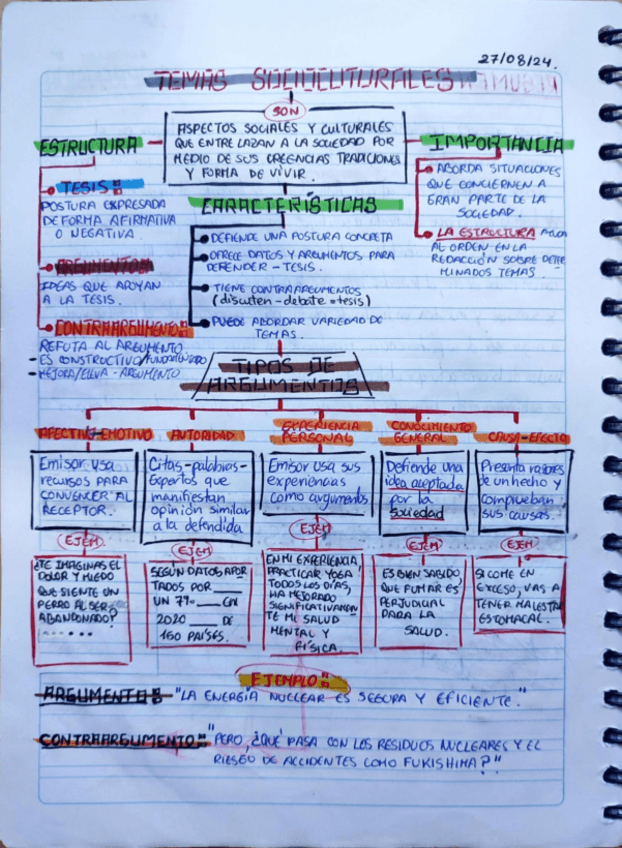 27/08/24.
TEMAS SOCIOCULTURALES
SON
ASPECTOS SOCIALES Y CULTURALES
QUE ENTRE LAZAN A LA SOCIEDAD POR
MEDIO DE SUS CREENCIAS TRADICIONES
Y FORMA DE VIVIR.
ESTRUCTURA
TESIS:
POSTURA EXPRESADA
DE FORMA AFIRMATIVA
O NEGATIVA.
ARGUMENTO:
IDEAS QUE APOYAN
A LA TESIS.
CONTRAARGUMENTO:
REFUTA AL ARGUMENTO
- ES CONSTRUCTIVO/FUNDAMENTADO
- MEJORA/ELEVA - ARGUMENTO
CARACTERÍSTICAS
DEFIENDE UNA POSTURA CONCRETA
OFRECE DATOS Y ARGUMENTOS PARA
DEFENDER - TESIS.
TIENE CONTRAARGUMENTOS
(discuten - debate = tesis)
PUEDE ABORDAR VARIEDAD DE
TEMAS.
IMPORTANCIA
ABORDA SITUACIONES
QUE CONCIERNEN A
GRAN PARTE DE LA
SOCIEDAD.
LA ESTRUCTURA
AL ORDEN EN LA
REDACCIÓN SOBRE DETER
MINADOS TEMAS.
TIPOS DE
ARGUMENTOS
AFECTIVO-EMOTIVO
Emisor usa
recursos PARA
CONVENCER AL
RECEPTOR.
EJEM
¿TE IMAGINAS EL
DOLOR Y MIEDO
QUE SIENTE UN
PERRO AL SER
ABANDONADO?
......
AUTORIDAD
Citas-palabras-
Expertos que
manifiestan
opinión similar
a la defendida
EJEM
SEGÚN DATOS APOR
TADOS POR ____
UN 77% ____ EN
2020 ____ DE
160 PAÍSES.
EXPERIENCIA
PERSONAL
Emisor usa sus
experiencias
como argumentos
EJEM
EN MI EXPERIENCIA,
PRACTICAR YOGA
TODOS LOS DÍAS,
HA MEJORADO
SIGNIFICATIVAMEN
TE MI SALUD
MENTAL Y
FÍSICA.
CONOCIMIENTO
GENERAL
Defiende una
idea aceptada
por la
sociedad
EJEM
ES BIEN SABIDO,
QUE FUMAR ES
PERJUDICIAL
PARA LA
SALUD.
CAUSA-EFECTO
Presenta razones
de un hecho y
comprueban
sus causas.
EJEM
SI COME EN
EXCESO, VAS A
TENER MALESTAR
ESTOMACAL.
EJEMPLO:
ARGUMENTO: "LA ENERGÍA NUCLEAR ES SEGURA Y EFICIENTE."
CONTRAARGUMENTO: "PERO, ¿QUÉ PASA CON LOS RESIDUOS NUCLEARES Y EL
RIESGO DE ACCIDENTES COMO FUKISHIMA?"